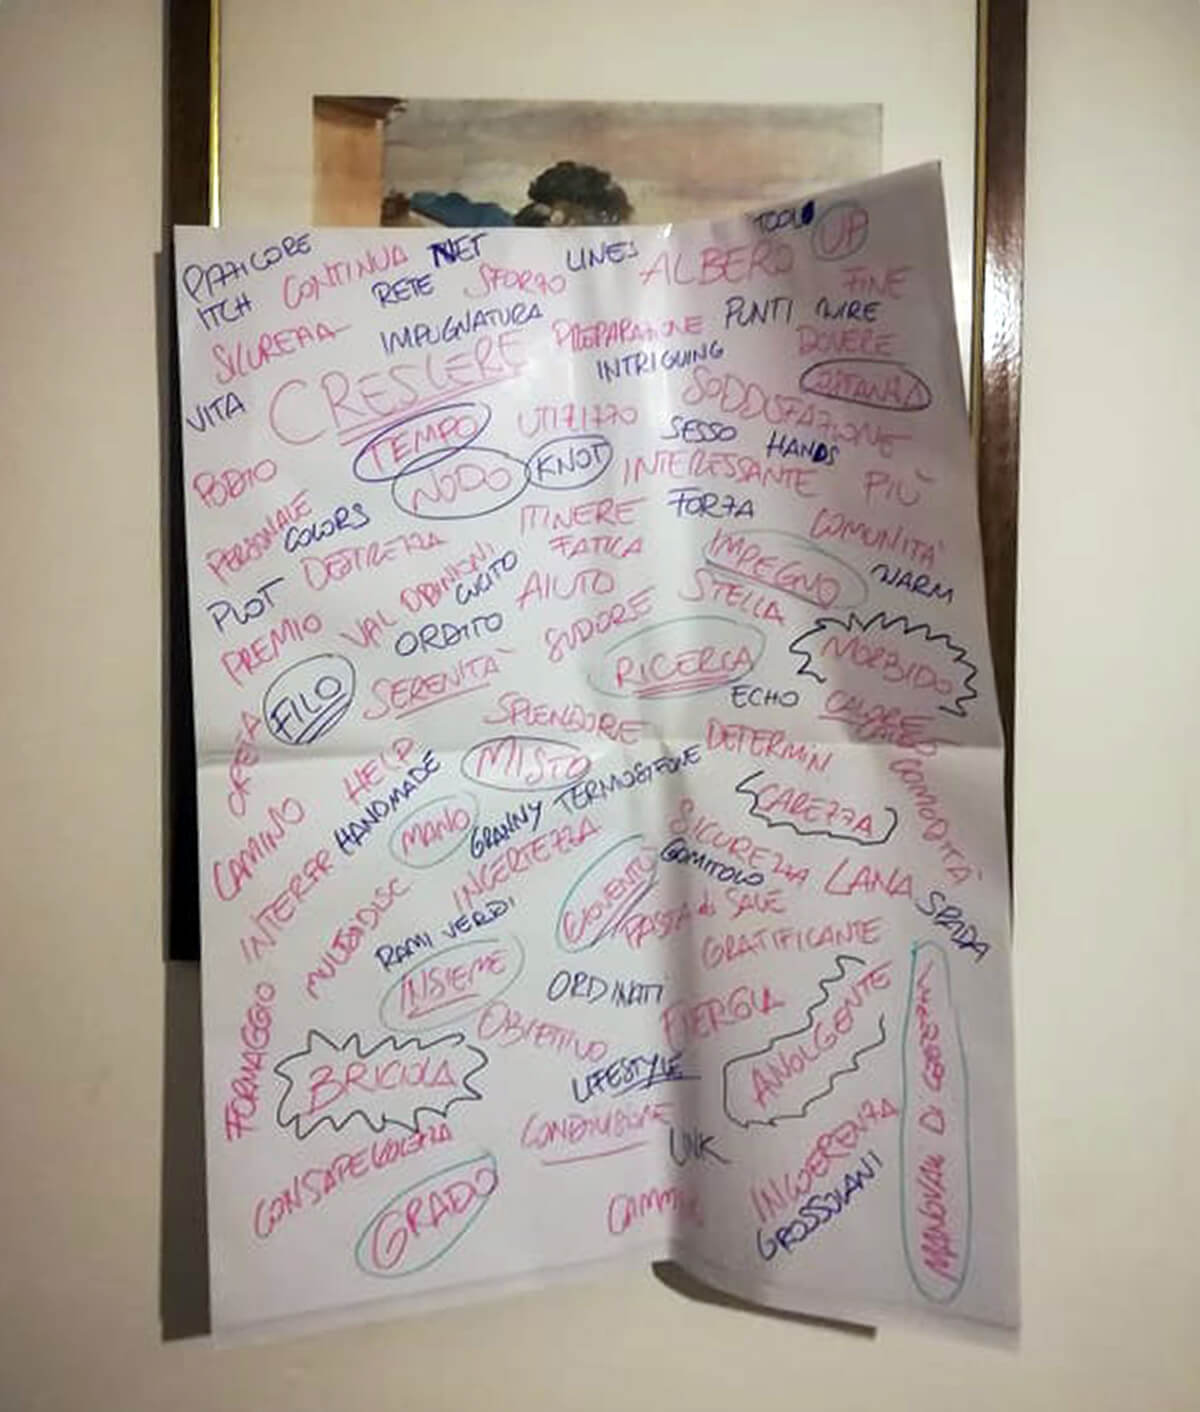 PIZZICORE
ITCH
CONTINUA
NET
RETE
SFORZO
LINES
ALBERO
TOOL
UP
FINE
SICUREZZA
IMPUGNATURA
PREPARAZIONE
PUNTI
WIRE
INTRIGUING
DOVERE
VITA
CRESCERE
TEMPO
UTILIZZO
SODDISFAZIONE
SESSO
HANDS
PODIO
NODO
KNOT
INTERESSANTE
PIÙ
PERSONALE
COLORS
ITINERE
FORZA
COMUNITÀ
DESTREZZA
FATICA
IMPEGNO
WARM
PLOT
CUCITO
AIUTO
STELLA
PREMIO
VAL OPINIONI
ORDITO
SUDORE
MORBIDO
RICERCA
FILO
SERENITÀ
ECHO
CALORE
SPLENDORE
DETERMIN.
HELP
MISTO
COMODITÀ
HANDMADE
TERMOSIFONE
CAREZZA
CAMINO
MANO
GRANNY
INCERTEZZA
SICUREZZA
GOMITOLO
LANA
SPADA
INTERF
MULTIDISC
GIOVENTÙ
PASTA di SALE
RAMI VERDI
GRATIFICANTE
INSIEME
ORDINATI
ENERGIA
FORMAGGIO
OBIETTIVO
AVVOLGENTE
BRICIOLA
LIFESTYLE
CONDIVISIONE
LINK
CONSAPEVOLEZZA
INCOERENZA
GROSSOLANI
GRADO